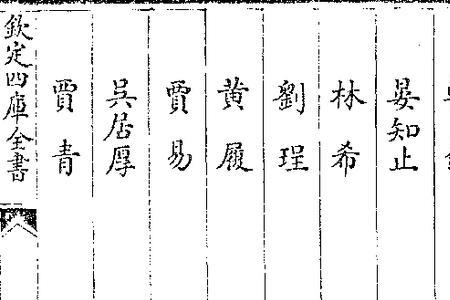 晏知止
林希
劉珵
黄履
賈易
吳居厚
賈青
欽定四庫全書